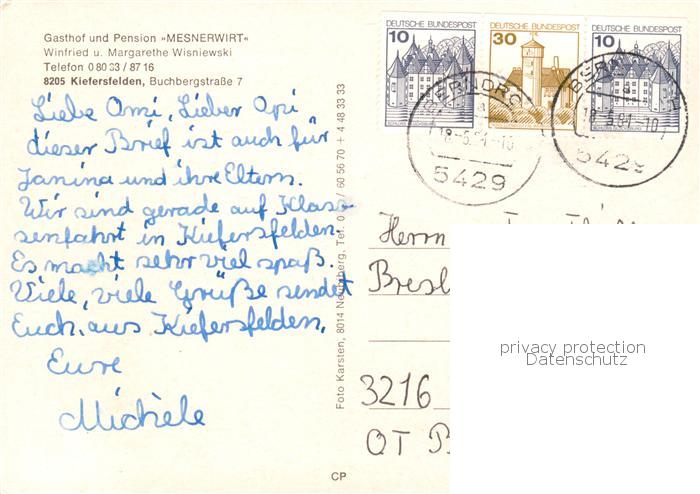 Gasthof und Pension »MESNERWIRT«
Winfried u. Margarethe Wisniewski
Telefon 0 80 33 / 87 16
8205 Kiefersfelden, Buchbergstraße 7
Liebe Omi, Lieber Opi
dieser Brief ist auch für
Janina und ihre Eltern.
Wir sind gerade auf Klas-
senfahrt in Kiefersfelden.
Es macht sehr viel spaß.
Viele, viele Grüße sendet
Euch aus Kiefersfelden,
Eure
Michèle
Foto Karsten, 8014 Neubiberg, Tel. 0 60 56 70 + 4 48 33 33
CP
DEUTSCHE BUNDESPOST
10
DEUTSCHE BUNDESPOST
30
DEUTSCHE BUNDESPOST
10
5429
5429
Herrn
3216
OT
privacy protection
Datenschutz